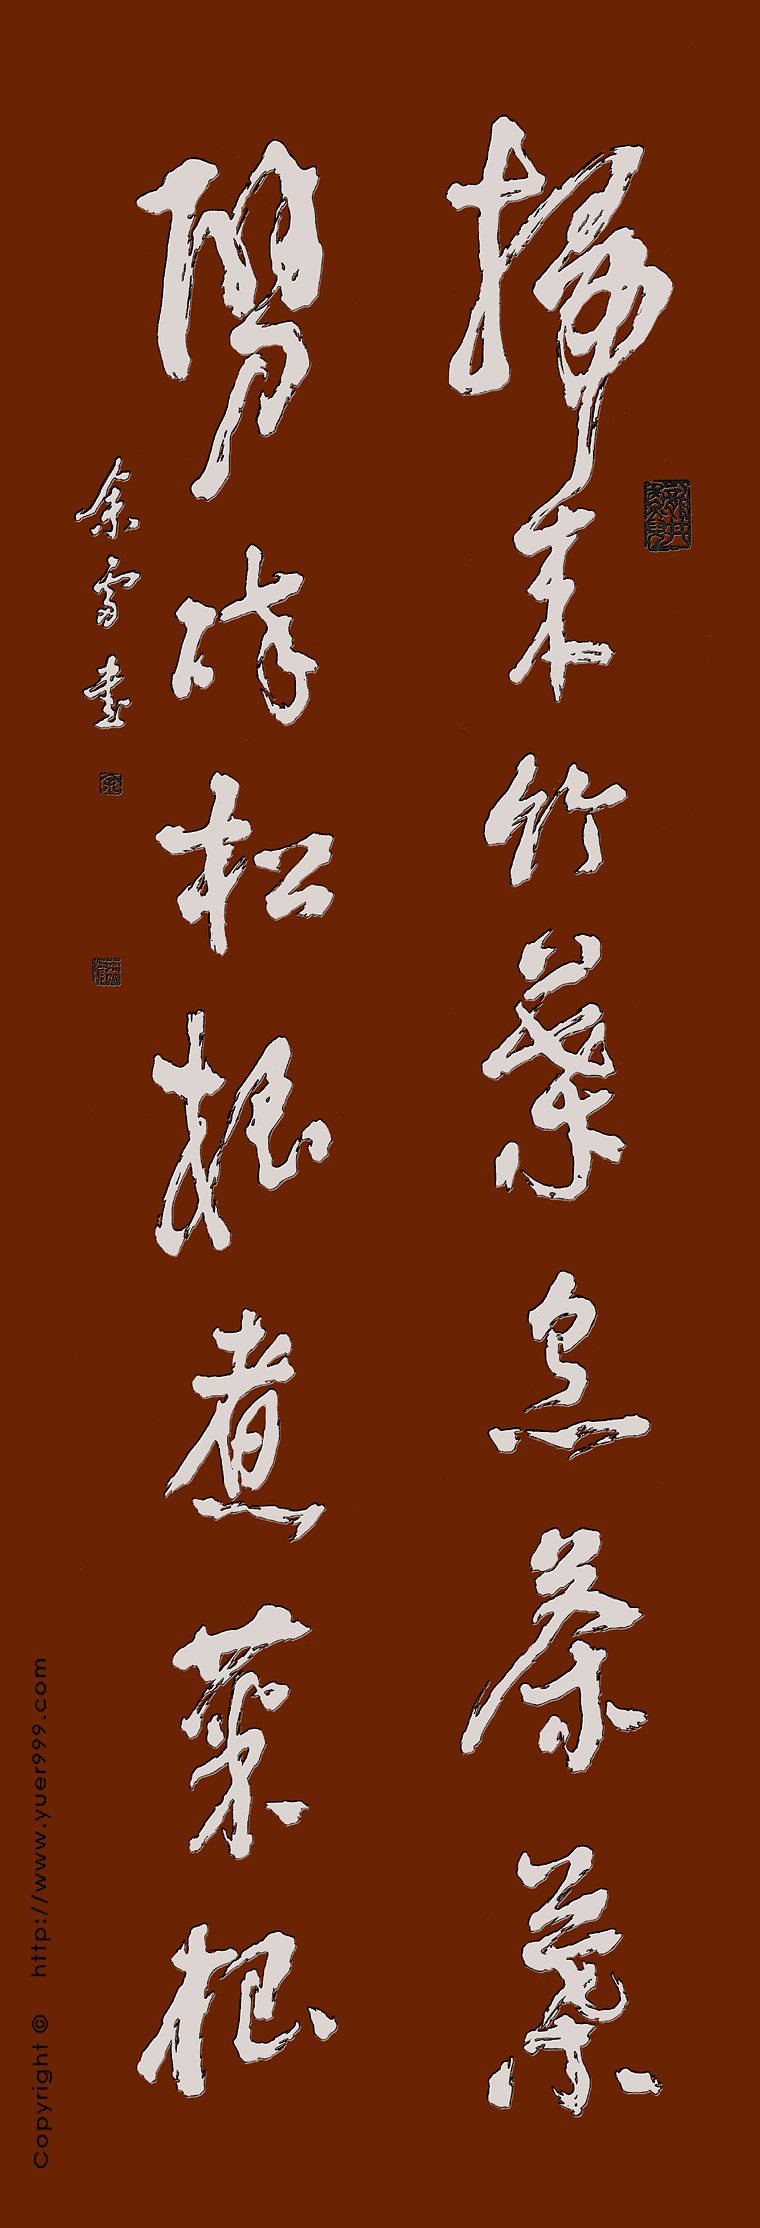 掃來竹葉烹茶葉
劈碎松根煮菜根
余雪書
Copyright © http://www.yuer999.com